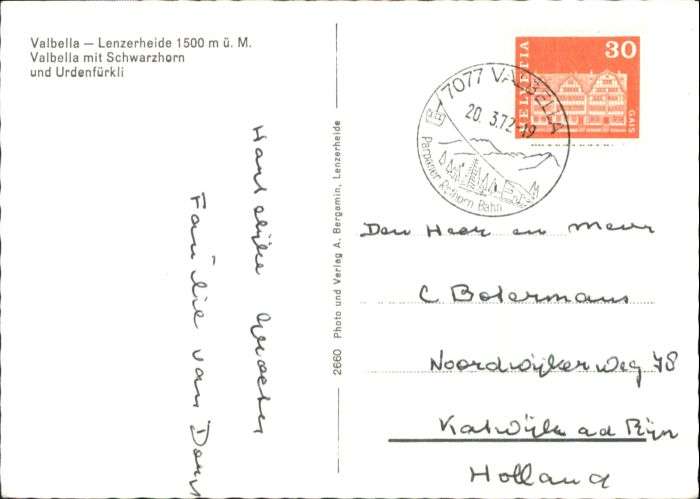 Valbella – Lenzerheide 1500 m ü. M.
Valbella mit Schwarzhorn
und Urdenfürkli
Hartelijke groeten
Familie van Dorp
2660 Photo und Verlag A. Bergamin, Lenzerheide
7077 VALBELLA
20.3.72-19
Parpaner Rothorn Bahn
HELVETIA
30
GAIS
Den Heer en Mevr
C Botermans
Noordwijkerweg 78
Katwijk a d Rijn
Holland